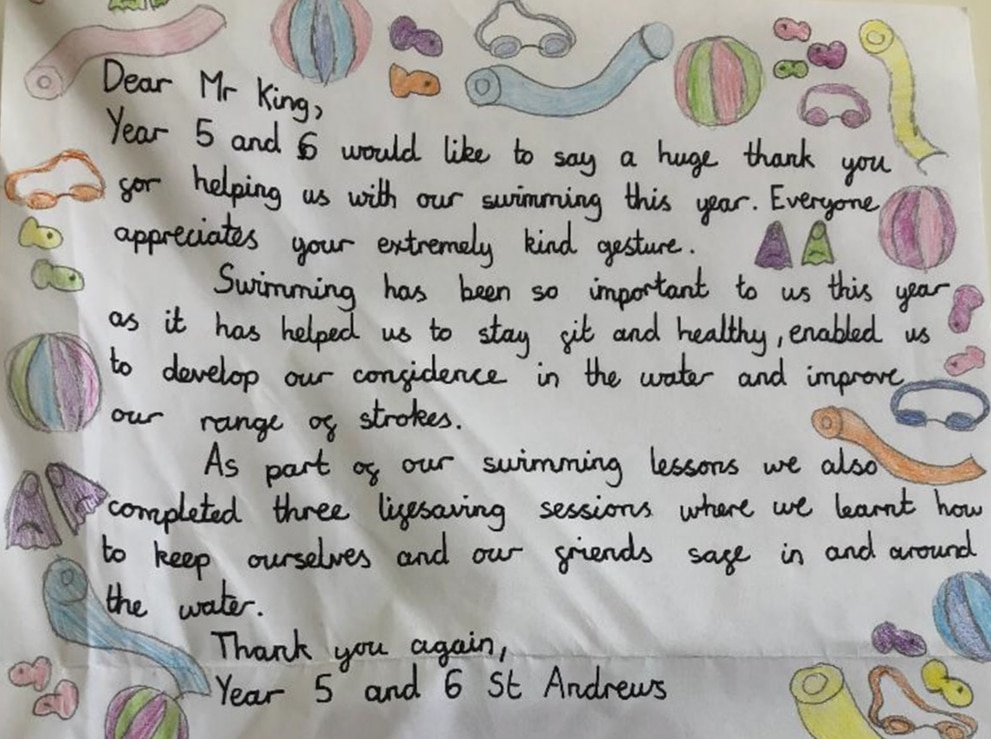 Dear Mr King,
Year 5 and 6 would like to say a huge thank you
for helping us with our swimming this year. Everyone
appreciates your extremely kind gesture.
Swimming has been so important to us this year
as it has helped us to stay fit and healthy, enabled us
to develop our confidence in the water and improve
our range of strokes.
As part of our swimming lessons we also
completed three lifesaving sessions where we learnt how
to keep ourselves and our friends safe in and around
the water.
Thank you again,
Year 5 and 6 St Andrews